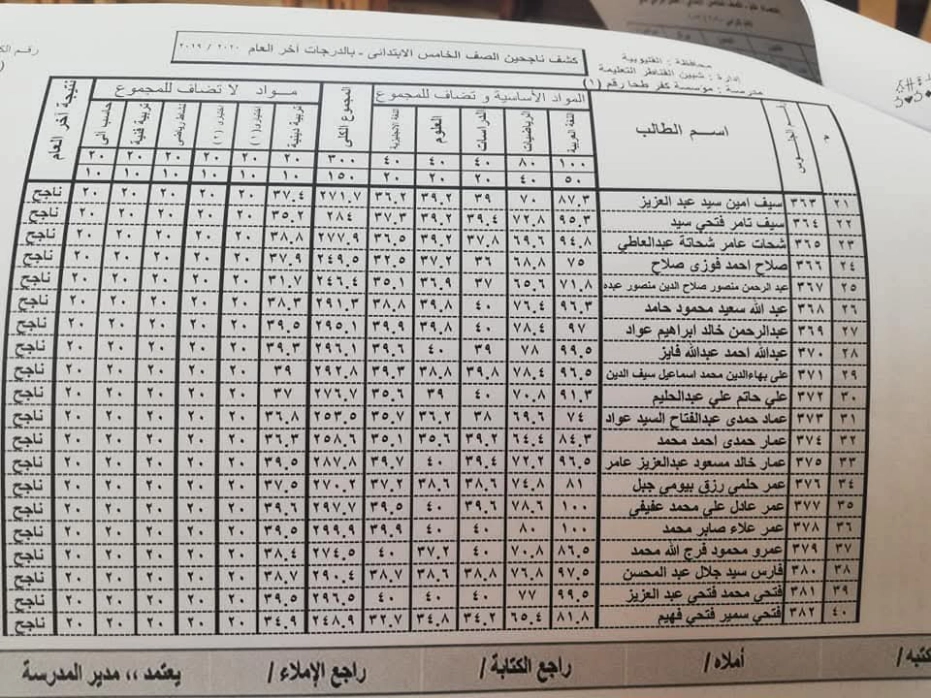 محافظة : القليوبية
إدارة : شبين القناطر التعليمة
مدرسة : مؤسسة كفر طحا رقم (١)
كشف ناجحين الصف الخامس الابتدائى - بالدرجات آخر العام ٢٠٢٠ / ٢٠١٩
رقم
م اسم الطالب المواد الأساسية و تضاف للمجموع المجموع الكلى مـــواد لا تضاف للمجموع نتيجة آخر العام
اللغة العربية الرياضيات الدراسات العلوم اللغة الانجليزية تربية دينية اختيارى (١) اختيارى (١) نشاط رياضى تربية فنية حاسب آلى
١٠٠ ٨٠ ٤٠ ٤٠ ٤٠ ٣٠٠ ٢٠ ٢٠ ٢٠ ٢٠ ٢٠ ٢٠
٥٠ ٤٠ ٢٠ ٢٠ ٢٠ ١٥٠ ١٠ ١٠ ١٠ ١٠ ١٠ ١٠
٢١ ٣٦٣ سيف امين سيد عبد العزيز ٨٧.٣ ٧٠ ٣٩ ٣٩.٢ ٣٦.٢ ٢٧١.٧ ٣٧.٤ ٢٠ ٢٠ ٢٠ ٢٠ ٢٠ ناجح
٢٢ ٣٦٤ سيف تامر فتحي سيد ٩٥.٣ ٧٢.٨ ٣٩.٤ ٣٩.٢ ٣٧.٣ ٢٨٤ ٣٥.٢ ٢٠ ٢٠ ٢٠ ٢٠ ٢٠ ناجح
٢٣ ٣٦٥ شحات عامر شحاتة عبدالعاطي ٩٤.٨ ٦٩.٦ ٣٧.٨ ٣٩.٢ ٣٦.٥ ٢٧٧.٩ ٣٨.٨ ٢٠ ٢٠ ٢٠ ٢٠ ٢٠ ناجح
٢٤ ٣٦٦ صلاح احمد فوزى صلاح ٧٥ ٦٨.٨ ٣٦ ٣٧.٢ ٣٢.٥ ٢٤٩.٥ ٣٧.٩ ٢٠ ٢٠ ٢٠ ٢٠ ٢٠ ناجح
٢٥ ٣٦٧ عبد الرحمن منصور صلاح الدين منصور عبده ٧١.٨ ٦٥.٦ ٣٦.٩ ٣٧ ٣٥.١ ٢٤٦.٤ ٣١.٧ ٢٠ ٢٠ ٢٠ ٢٠ ٢٠ ناجح
٢٦ ٣٦٨ عبد الله سعيد محمود حامد ٩٦.٣ ٧٦.٤ ٤٠ ٣٩.٨ ٣٨.٨ ٢٩١.٣ ٣٨.٣ ٢٠ ٢٠ ٢٠ ٢٠ ٢٠ ناجح
٢٧ ٣٦٩ عبدالرحمن خالد ابراهيم عواد ٩٧ ٧٨.٤ ٤٠ ٣٩.٨ ٣٩.٩ ٢٩٥.١ ٣٩.٥ ٢٠ ٢٠ ٢٠ ٢٠ ٢٠ ناجح
٢٨ ٣٧٠ عبدالله احمد عبدالله فايز ٩٩.٥ ٧٨ ٣٩ ٤٠ ٣٩.٦ ٢٩٦.١ ٣٩.٣ ٢٠ ٢٠ ٢٠ ٢٠ ٢٠ ناجح
٢٩ ٣٧١ على بهاءالدين محمد اسماعيل سيف الدين ٩٦.٥ ٧٨.٤ ٣٩.٨ ٣٨.٨ ٣٩.٣ ٢٩٢.٨ ٣٩ ٢٠ ٢٠ ٢٠ ٢٠ ٢٠ ناجح
٣٠ ٣٧٢ علي حاتم علي عبدالحليم ٩١.٣ ٧٠.٨ ٤٠ ٣٩ ٣٥.٦ ٢٧٦.٧ ٣٧ ٢٠ ٢٠ ٢٠ ٢٠ ٢٠ ناجح
٣١ ٣٧٣ عماد حمدى عبدالفتاح السيد عواد ٧٤ ٦٩.٦ ٣٨ ٣٦.٢ ٣٥.٧ ٢٥٣.٥ ٣٦.٨ ٢٠ ٢٠ ٢٠ ٢٠ ٢٠ ناجح
٣٢ ٣٧٤ عمار حمدى احمد محمد ٨٤.٣ ٦٤.٤ ٣٩.٢ ٣٥.٦ ٣٥.١ ٢٥٨.٦ ٣٦.٣ ٢٠ ٢٠ ٢٠ ٢٠ ٢٠ ناجح
٣٣ ٣٧٥ عمار خالد مسعود عبدالعزيز عامر ٩٦.٥ ٧٢.٢ ٣٩.٤ ٤٠ ٣٩.٧ ٢٨٧.٨ ٣٩.٥ ٢٠ ٢٠ ٢٠ ٢٠ ٢٠ ناجح
٣٤ ٣٧٦ عمر حلمي رزق بيومي جبل ٨١ ٧٤.٨ ٣٨.٦ ٣٨.٦ ٣٧.٢ ٢٧٠.٢ ٣٧.٥ ٢٠ ٢٠ ٢٠ ٢٠ ٢٠ ناجح
٣٥ ٣٧٧ عمر عادل علي محمد عفيفي ١٠٠ ٧٨.٦ ٣٩.٦ ٤٠ ٣٩.٥ ٢٩٧.٧ ٣٩.٦ ٢٠ ٢٠ ٢٠ ٢٠ ٢٠ ناجح
٣٦ ٣٧٨ عمر علاء صابر محمد ١٠٠ ٨٠ ٤٠ ٤٠ ٣٩.٩ ٢٩٩.٩ ٣٩.٥ ٢٠ ٢٠ ٢٠ ٢٠ ٢٠ ناجح
٣٧ ٣٧٩ عمرو محمود فرج الله محمد ٨٦.٥ ٧٠.٨ ٤٠ ٣٧.٢ ٤٠ ٢٧٤.٥ ٣٨.٤ ٢٠ ٢٠ ٢٠ ٢٠ ٢٠ ناجح
٣٨ ٣٨٠ فارس سيد جلال عبد المحسن ٩٧.٥ ٧٦.٨ ٣٨.٨ ٣٨.٦ ٣٨.٧ ٢٩٠.٤ ٣٨.٧ ٢٠ ٢٠ ٢٠ ٢٠ ٢٠ ناجح
٣٩ ٣٨١ فتحي محمد فتحي عبد العزيز ٩٩.٥ ٧٧ ٤٠ ٤٠ ٤٠ ٢٩٦.٥ ٣٩.٥ ٢٠ ٢٠ ٢٠ ٢٠ ٢٠ ناجح
٤٠ ٣٨٢ فتحي سمير فتحي فهيم ٨١.٨ ٦٥.٤ ٣٤.٢ ٣٤.٨ ٣٢.٧ ٢٤٨.٩ ٣٤.٩ ٢٠ ٢٠ ٢٠ ٢٠ ٢٠ ناجح
كتبه / أملاه / راجع الكتابة / راجع الإملاء / يعتمد ،، مدير المدرسة